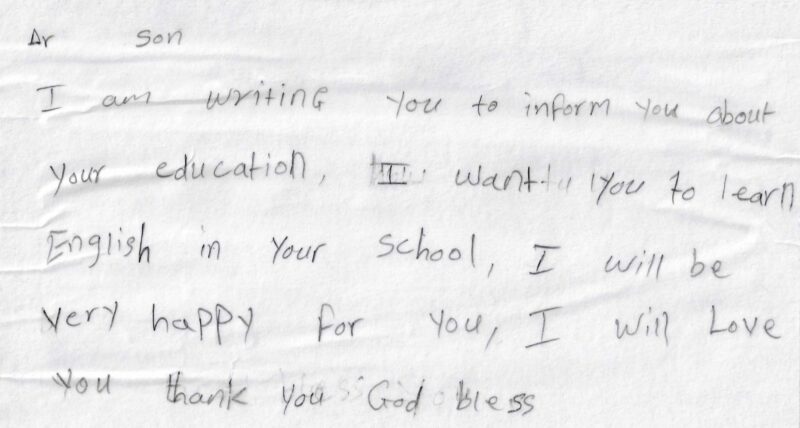 Dr son
I am writing you to inform you about
your education, I want you to learn
English in your school, I will be
very happy for you, I will Love
you thank you God bless